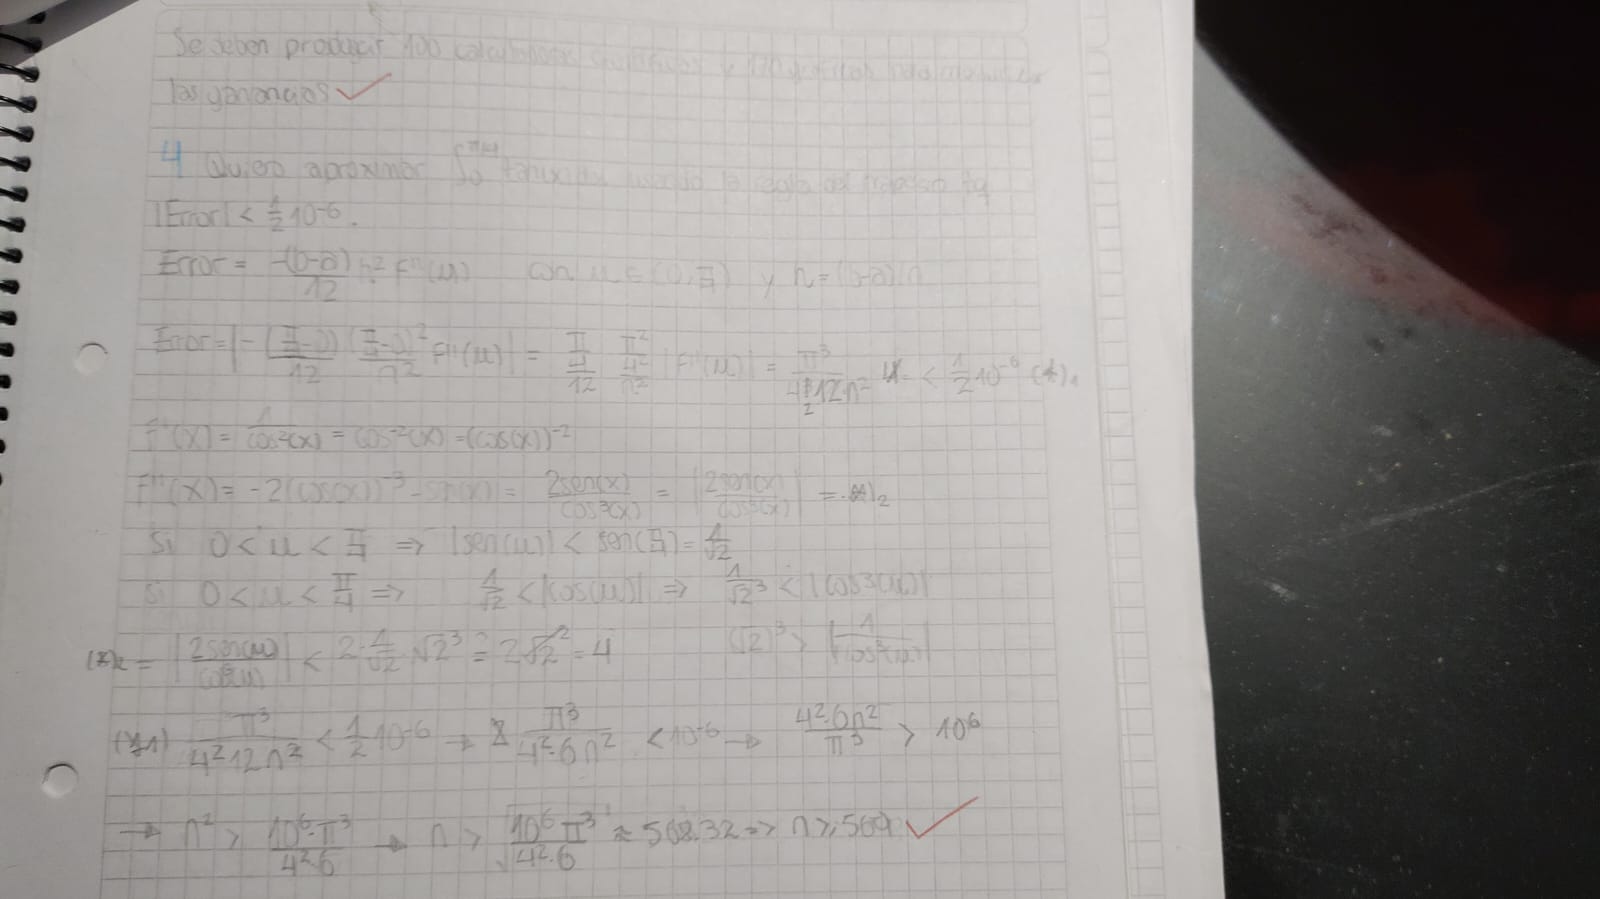 Se deben producir 100 calculadoras científicas y 170 gráficas para maximizar
las ganancias ✓
4 Quiero aproximar ∫₀^π/4 tan(x)dx usando la regla del trapecio tq
|Error| < 1/2 10^-6.
Error = -(b-a)/12 h² F''(μ) con μ ∈ (0, π/4) y h = (b-a)/n
Error = |-(π/4-0)/12 (π/4-0)²/n² F''(μ)| = π/4/12 π²/4²/n² |F''(μ)| = π³/4²12·n² < 1/2 10^-6 (*)₁
F'(x) = 1/cos²(x) = cos^-2(x) = (cos(x))^-2
F''(x) = -2(cos(x))^-3 · -sen(x) = 2sen(x)/cos³(x) = |2sen(x)/cos³(x)| = (*)₂
Si 0 < μ < π/4 ⇒ |sen(μ)| < sen(π/4) = 1/√2
Si 0 < μ < π/4 ⇒ 1/√2 < |cos(μ)| ⇒ 1/√2³ < |cos³(μ)|
(*)₂ = |2sen(μ)/cos³(μ)| < 2·1/√2 √2³ = 2√2² = 4 (√2)³ > |1/cos³(μ)|
(*1) π³/4²12n² < 1/2 10^-6 → π³/4²·6n² < 10^-6 → 4²·6n²/π³ > 10^6
→ n² > 10^6·π³/4²·6 → n > √10^6 π³/4²·6 ≈ 568.32 => n ≥ 569 ✓